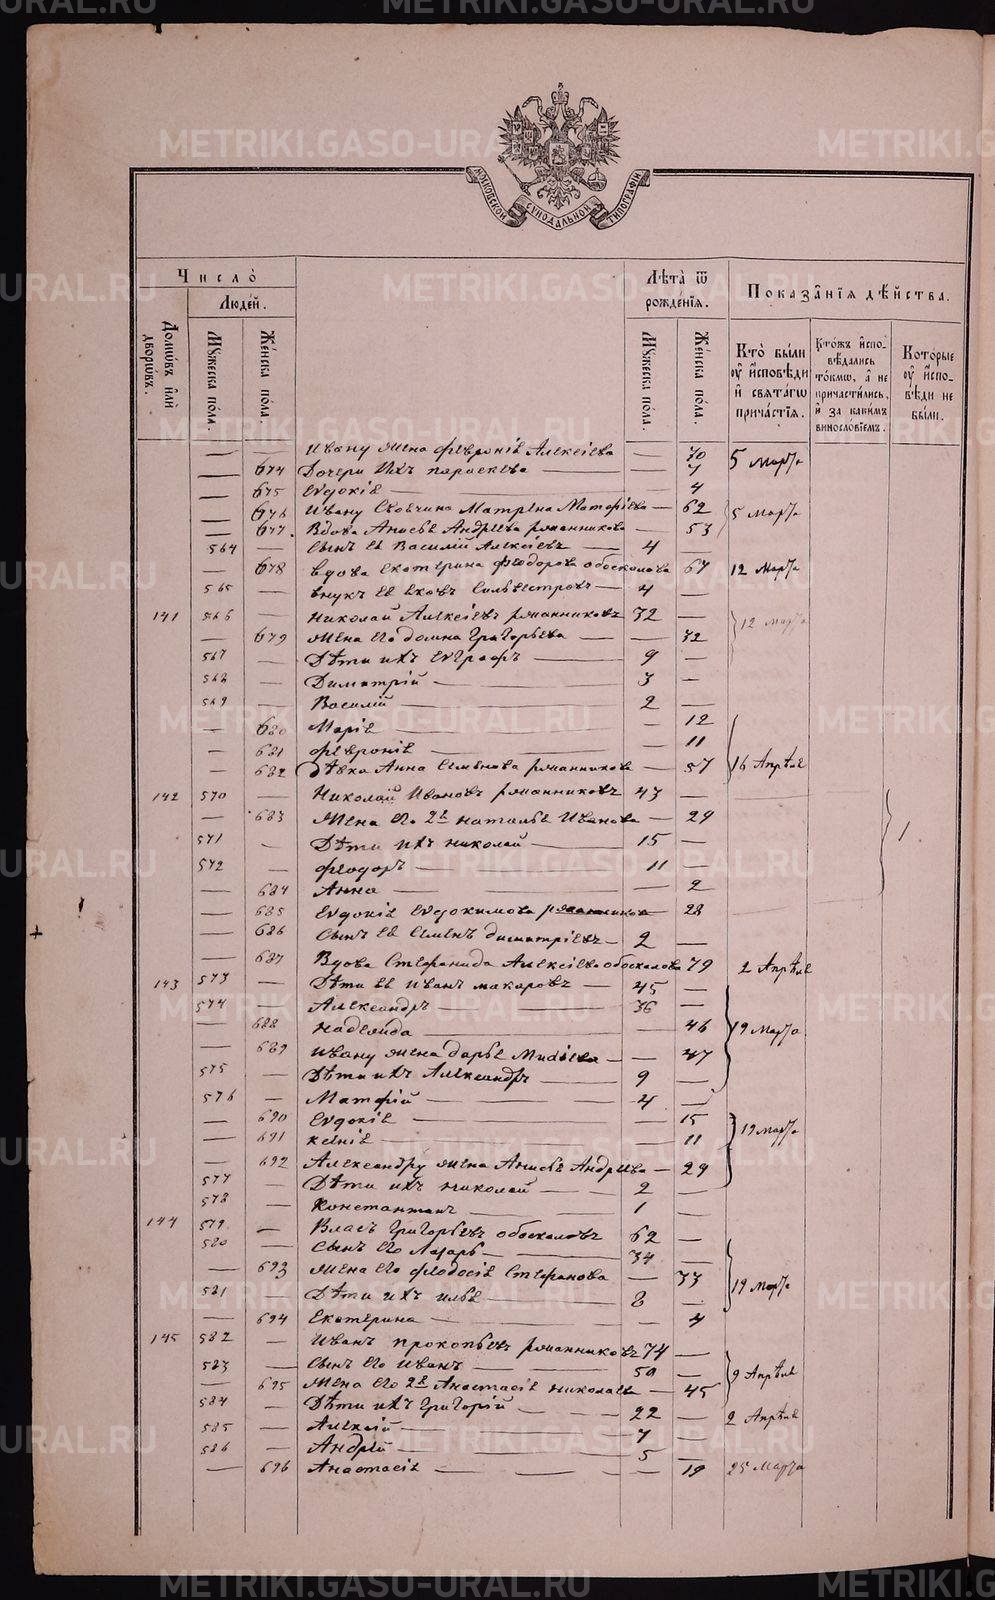 METRIKI.GASO-URAL.RU
МОСКОВСКОЙ СѴНОДАЛЬНОЙ ТИПОГРАФІИ
Число̀
Людей.
Лѣта̀ ѿ рожде́нїѧ.
Показа̑нїѧ дѣ́йства.
Домѡ́въ и҆лѝ дворѡ́въ.
Мꙋ́жеска по́ла.
Же́нска по́ла.
Мꙋ́жеска по́ла.
Же́нска по́ла.
Кто̀ бы́ли ᲂу҆ и҆́сповѣди и҆ свѧта́гѡ прича́стїѧ.
Кто́жъ и҆спо- вѣ́дались то́кмѡ, а҆ не причасти́лись, и҆ за каки́мъ винословїемъ.
Кото́рые ᲂу҆ и҆спо- вѣди не бы́ли.
— — Ивану жена Февронія Алексіева — 70
— 674 Дочери ихъ Параскева — 7 5 Марта
— 675 Евдокія — 4
— 676 Ивану Матрена Матфіева — 62 5 Марта
— 677 Вдова Анисья Андреева Романникова — 53
564 — Сынъ ея Василій Алексіевъ 4 —
— 678 Вдова Екатерина Феодорова Обоскалова 67 12 Марта
565 — Внукъ ея Іаковъ Сильвестровъ 4 —
141 566 — Николай Алексіевъ Романниковъ 72 — 12 Марта
— 679 Жена его Домна Григорьева — 72
567 — Дѣти ихъ Евграфъ 9 —
568 — Димитрій 3 —
569 — Василій 2 —
— 680 Марія — 12
— 681 Февронія — 11
— 682 Дѣвка Анна Семенова Романникова — 57 16 Апрѣля
142 570 — Николай Ивановъ Романниковъ 43 —
— 683 Жена его 2я Наталья Иванова — 29
571 — Дѣти ихъ Николай 15 — 1
572 — Феодоръ 11 —
— 684 Анна — 2
— 685 Евдокія Евдокимова Романникова — 28
— 686 Сынъ ея Семенъ Димитріевъ 2 —
— 687 Вдова Стефанида Алексіева Обоскалова 79 2 Апрѣля
143 573 — Дѣти ея Иванъ Макаровъ 45 —
574 — Александръ 36 —
— 688 Надежда — 46 19 Марта
— 689 Ивану жена Дарья — 47
575 — Дѣти ихъ Александръ 9 —
576 — Матфій 4 —
— 690 Евдокія — 15
— 691 Ксенія — 11 19 Марта
— 692 Александру жена Анисья Андреева — 29
577 — Дѣти ихъ Николай 2 —
578 — Константинъ 1 —
144 579 — Власъ Григорьевъ Обоскаловъ 62 —
580 — Сынъ его Лазарь 34 —
— 693 Жена его Феодосія Стефанова — 33
581 — Дѣти ихъ Илья 8 — 19 Марта
— 694 Екатерина — 4
145 582 — Иванъ Прокопьевъ Романниковъ 74 —
583 — Сынъ его Иванъ 50 —
— 695 Жена его 2я Анастасія Николаева — 45 9 Апрѣля
584 — Дѣти ихъ Григорій 22 — 2 Апрѣля
585 — Алексій 7 —
586 — Андрей 5 —
— 696 Анастасія — 19 25 Марта